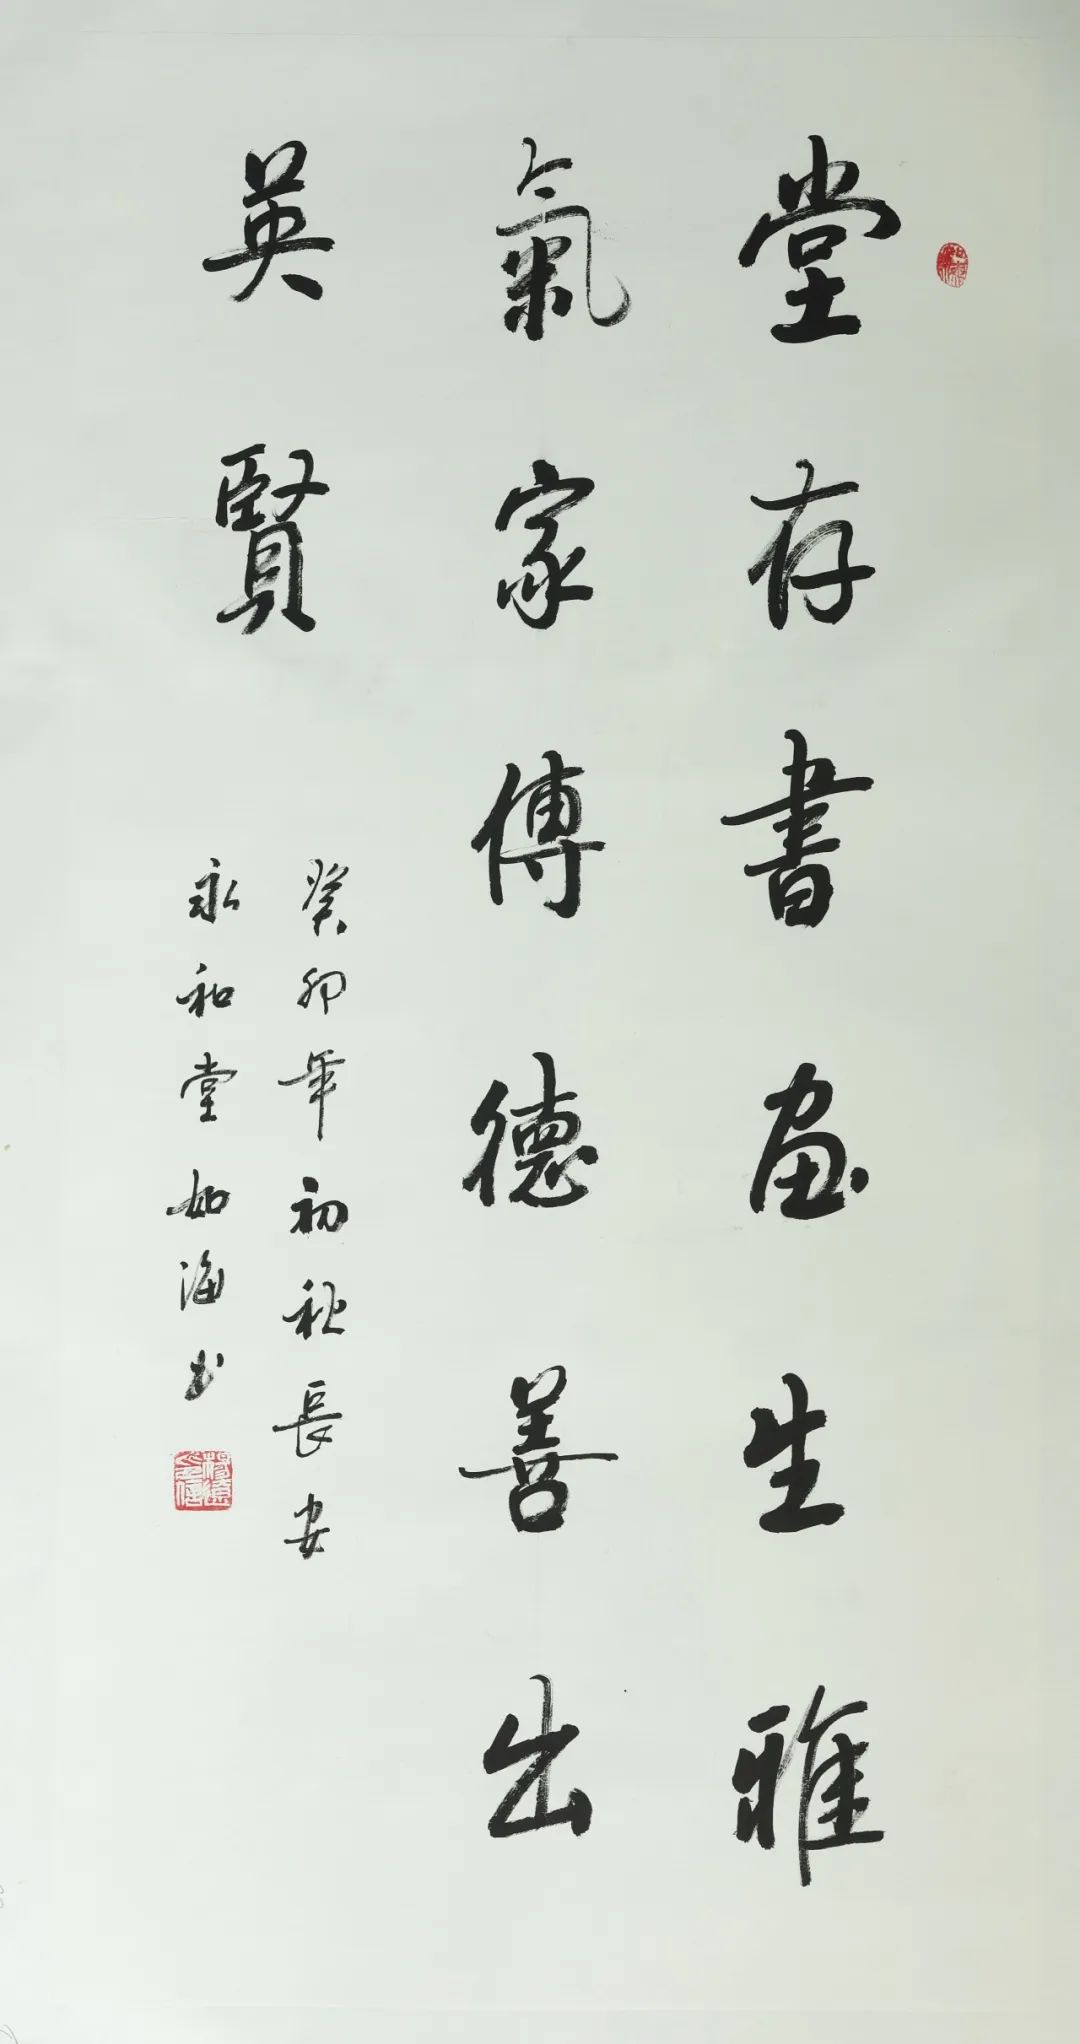 堂存書畫生雅
氣家傳德善出
英賢
癸卯年初秋長安
永和堂如海书